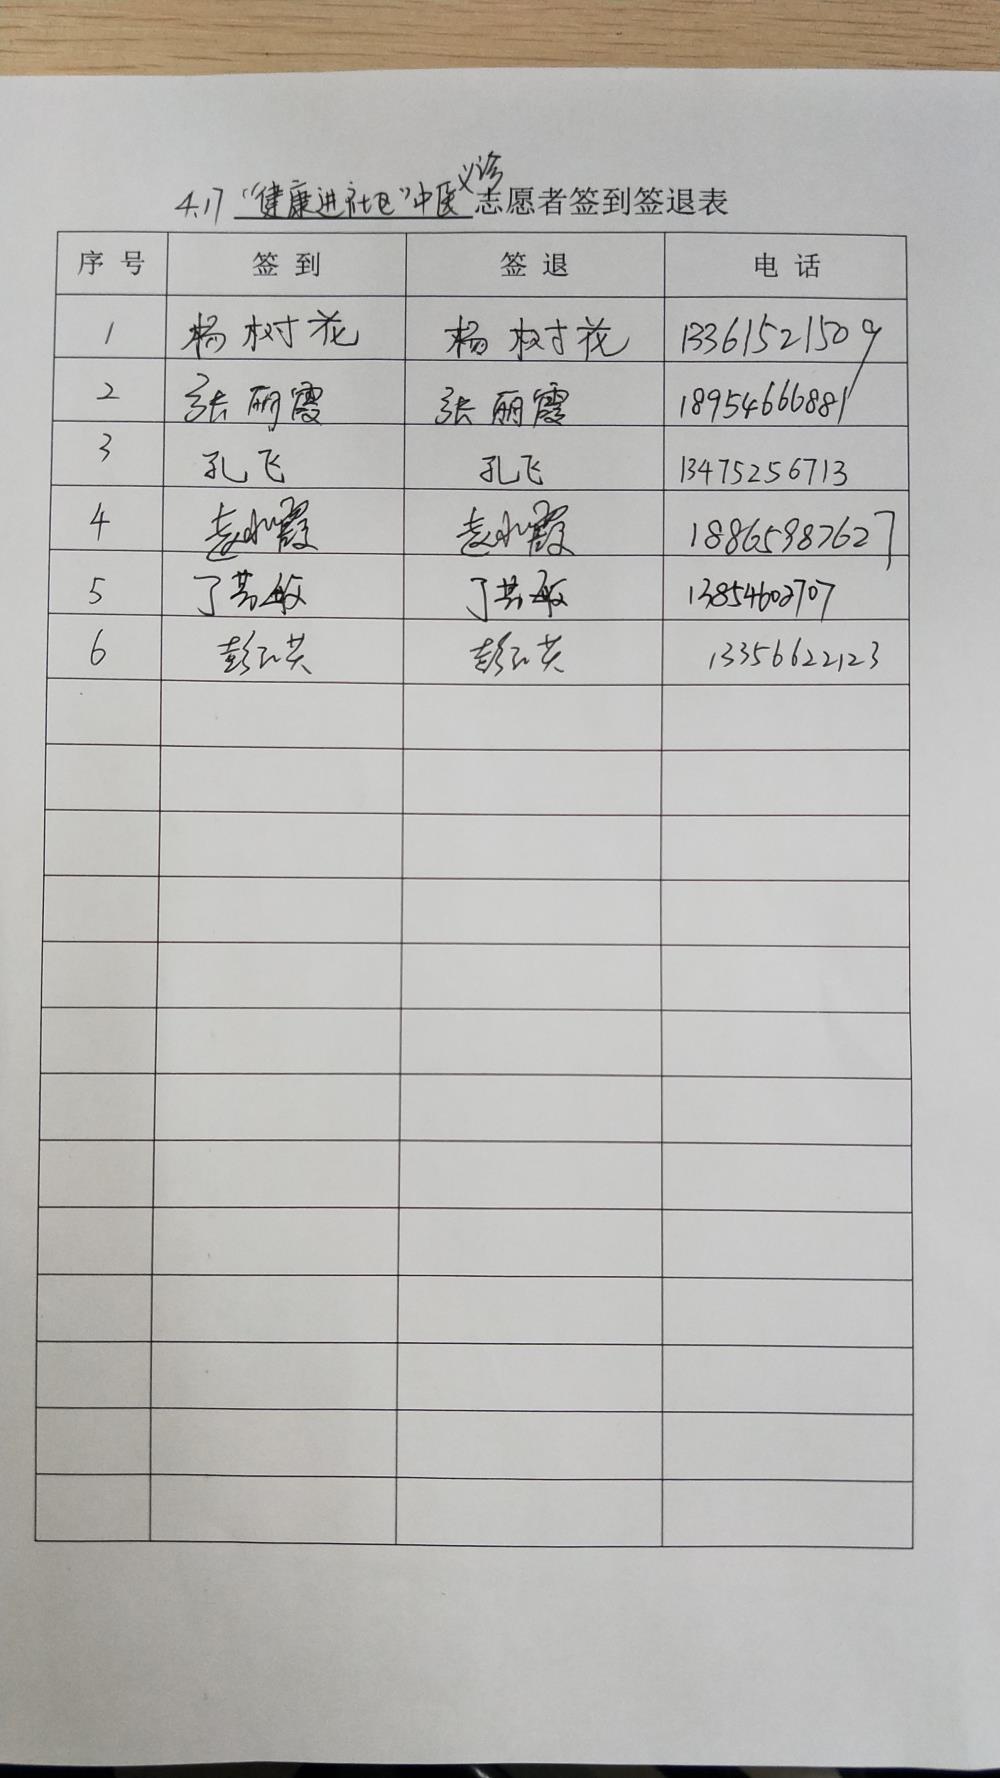 4.17 "健康进社区"中医义诊志愿者签到签退表
序号 签到 签退 电话
1 杨树花 杨树花 13361521509
2 张丽霞 张丽霞 18954666881
3 孔飞 孔飞 13475256713
4 赵小霞 赵小霞 18865987627
5 丁芳敏 丁芳敏 13854602707
6 彭红英 彭红英 13356622123